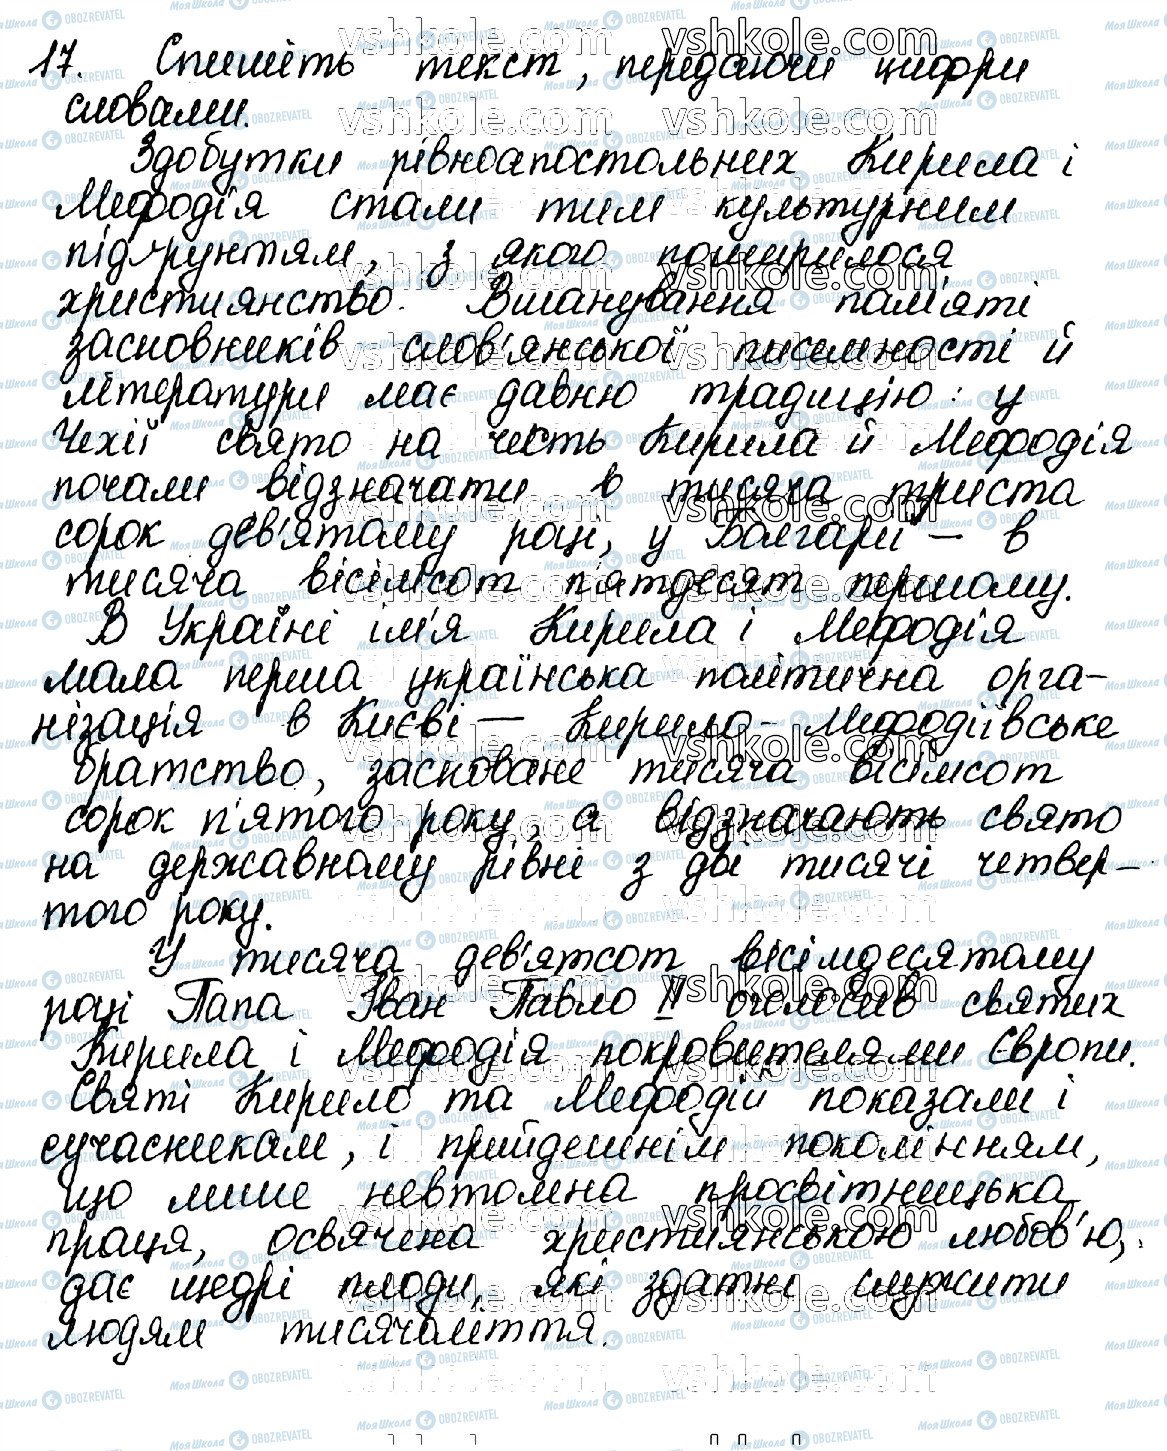 17. Спишіть текст, передаючи цифри
словами.
Здобутки рівноапостольних Кирила і
Мефодія стали тим культурним
підґрунтям, з якого поширилося
християнство. Вшанування пам'яті
засновників слов'янської писемності й
літератури має давню традицію: у
Чехії свято на честь Кирила й Мефодія
почали відзначати в тисяча триста
сорок дев'ятому році, у Болгарії — в
тисяча вісімсот п'ятдесят першому.
В Україні ім'я Кирила і Мефодія
мала перша українська політична орга-
нізація в Києві — Кирило-Мефодіївське
братство, засноване тисяча вісімсот
сорок п'ятого року, а відзначають свято
на державному рівні з дві тисячі четвер-
того року.
У тисяча дев'ятсот вісімдесятому
році Папа Іван Павло II оголосив святих
Кирила і Мефодія покровителями Європи.
Святі Кирило та Мефодій показали і
сучасникам, і прийдешнім поколінням,
що лише невтомна просвітницька
праця, освячена християнською любов'ю,
дає щедрі плоди, які здатні служити
людям тисячоліття.